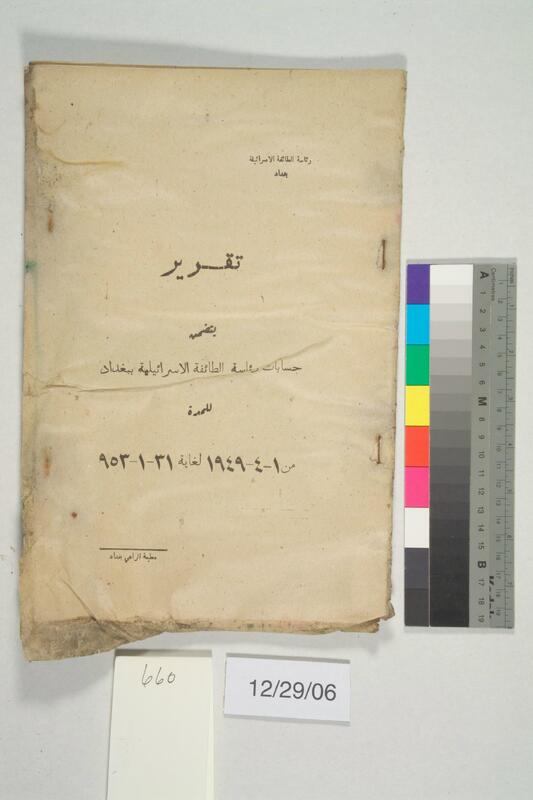 رئاسة الطائفة الاسرائيلية
بغداد
تقـــرير
يتضمن
حسابات رئاسة الطائفة الاسرائيلية ببغداد
للمدة
من ١-٤-١٩٤٩ لغاية ٣١-١-٩٥٣
مطبعة الراعي بغداد
660
12/29/06
inches
Centimetres
A 1 2 3 4 5 6 M 8 9 10 11 12 13 14 15 B 17 18 19